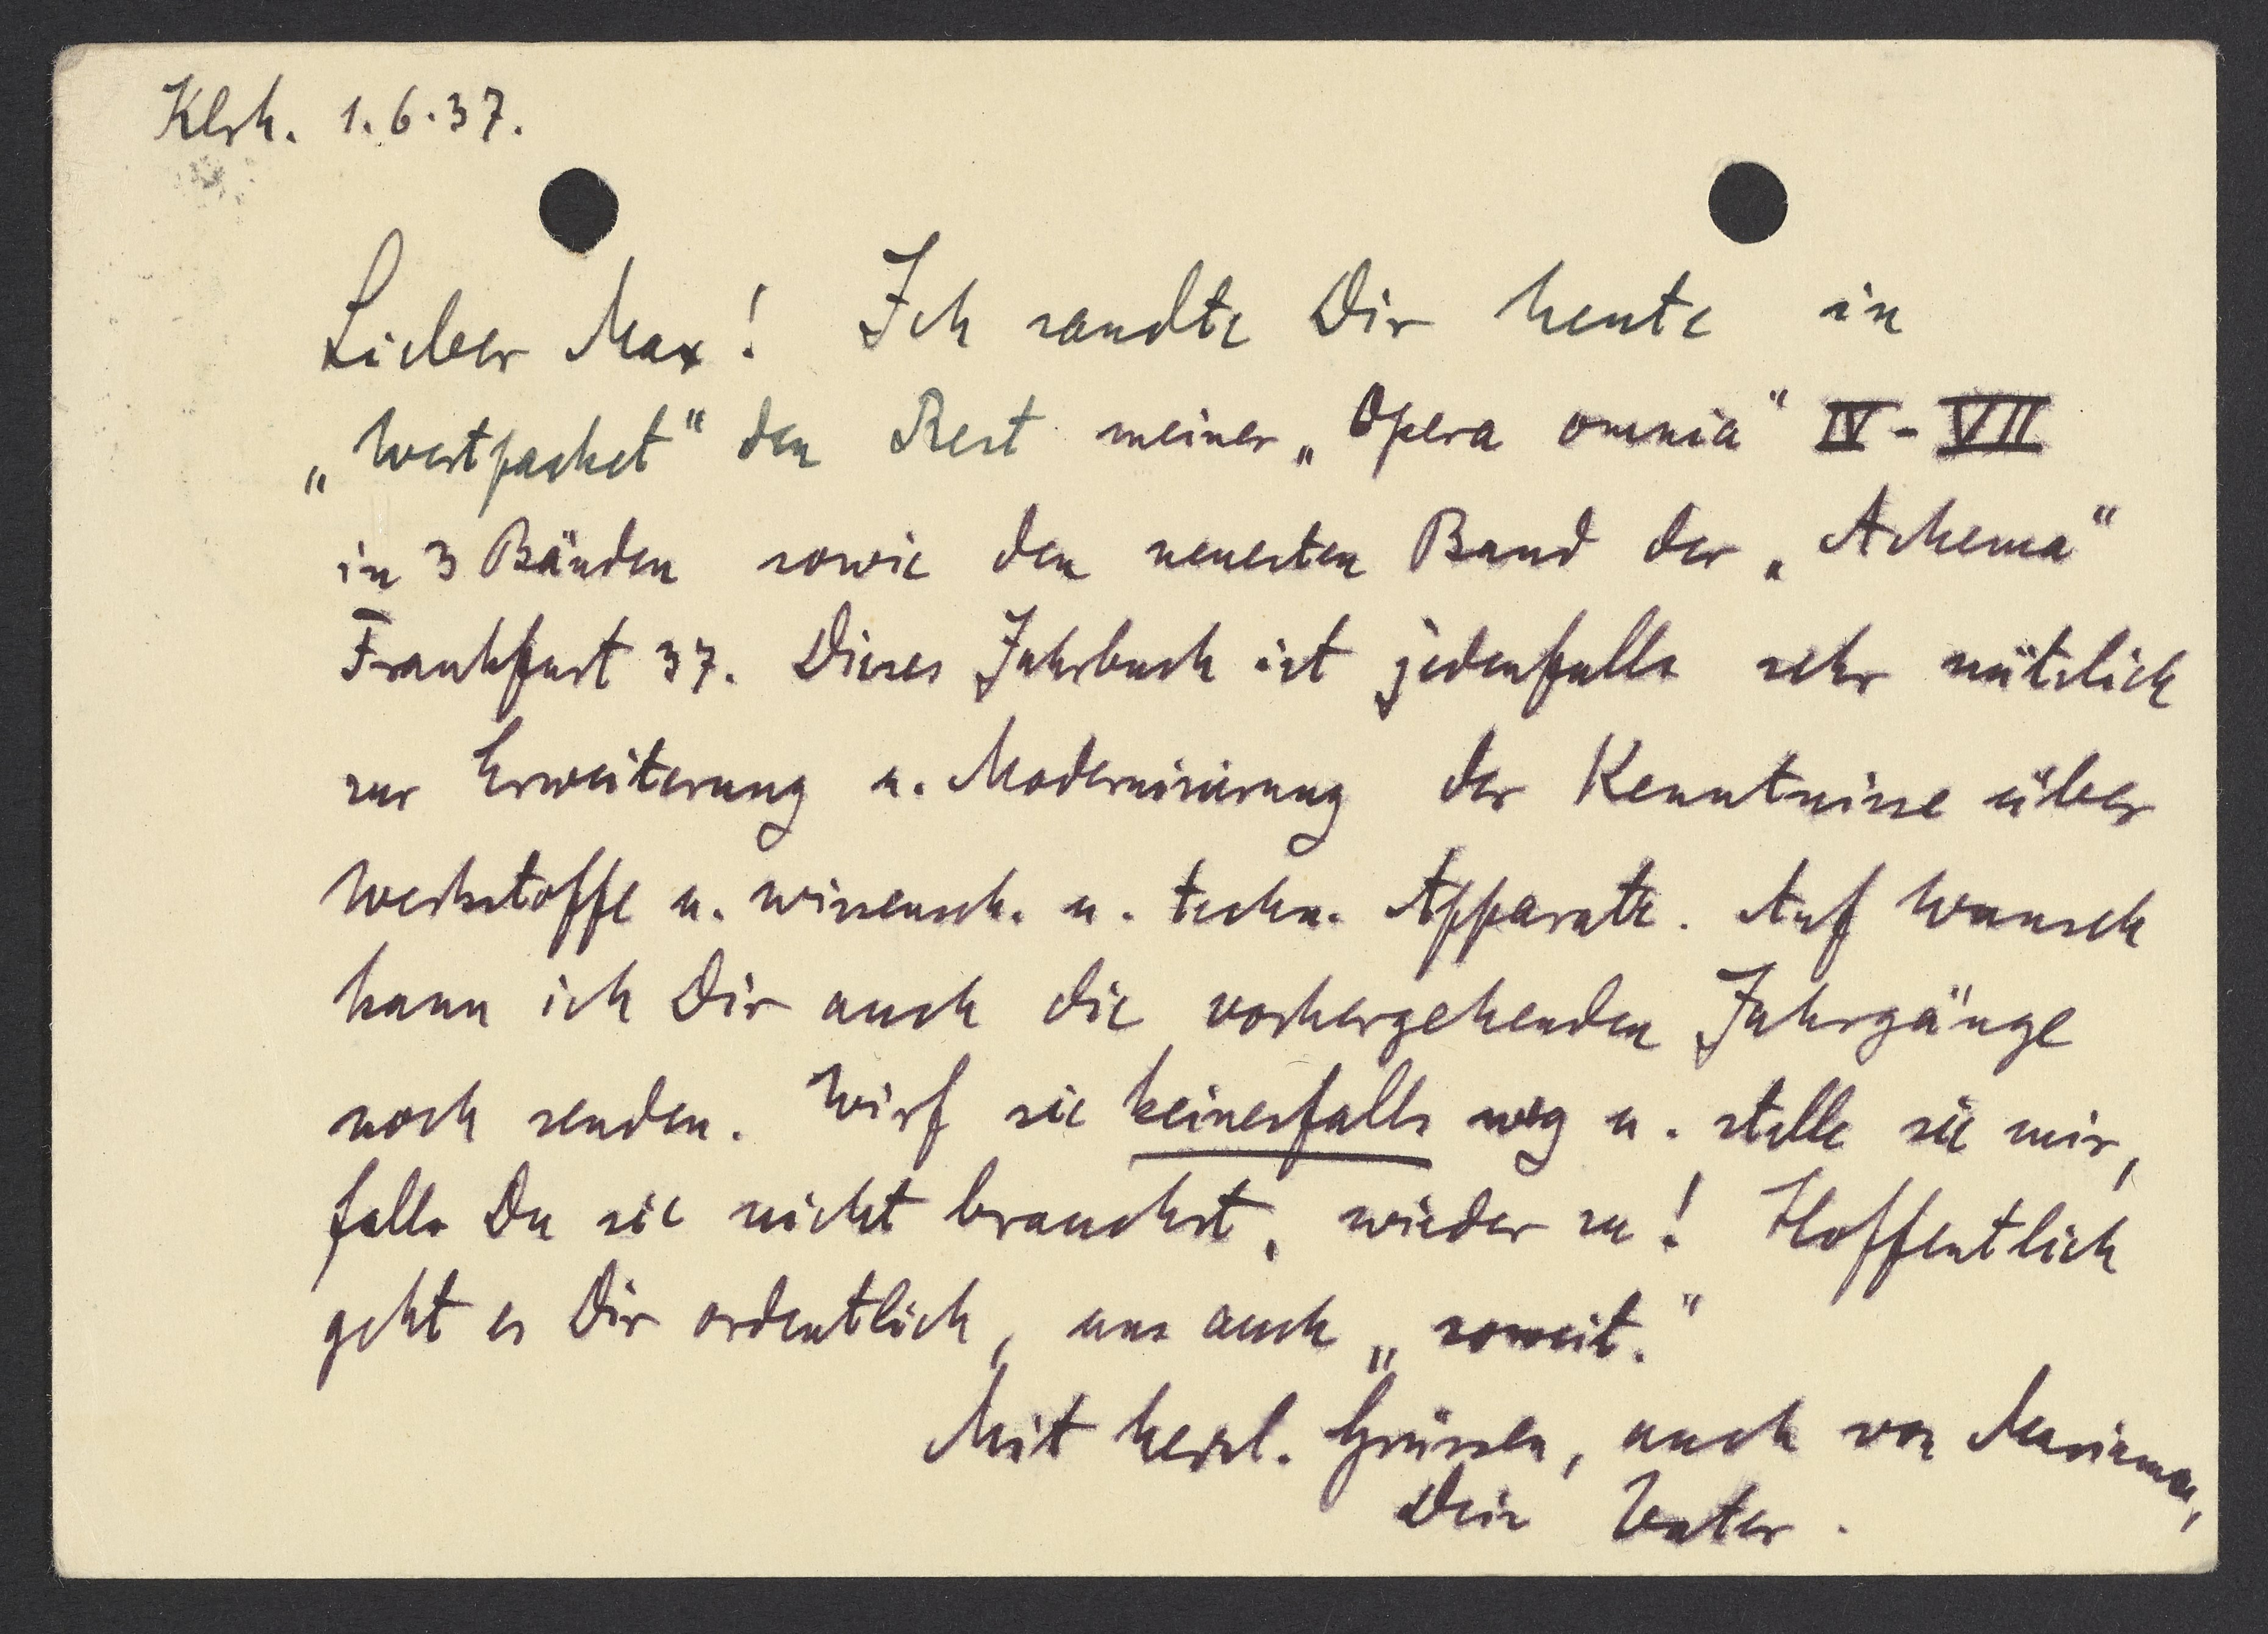 Klrh. 1.6.37.
Lieber Max! Ich sandte Dir heute in
„Wertpacket" den Rest meiner „Opera omnia" IV - VII
in 3 Bänden sowie den neuesten Band der „Achema"
Frankfurt 37. Dieses Jahrbuch ist jedenfalls sehr nützlich
zur Erweiterung u. Modernisierung der Kenntnisse über
Werkstoffe u. wissensch. u. techn. Apparate. Auf Wunsch
kann ich Dir auch die vorhergehenden Jahrgänge
noch senden. Wirf sie keinesfalls weg u. stelle sie mir,
falls Du sie nicht brauchst, wieder zu! Hoffentlich
geht es Dir ordentlich, uns auch „soweit."
Mit herzl. Grüssen, auch von
Dein Vater.